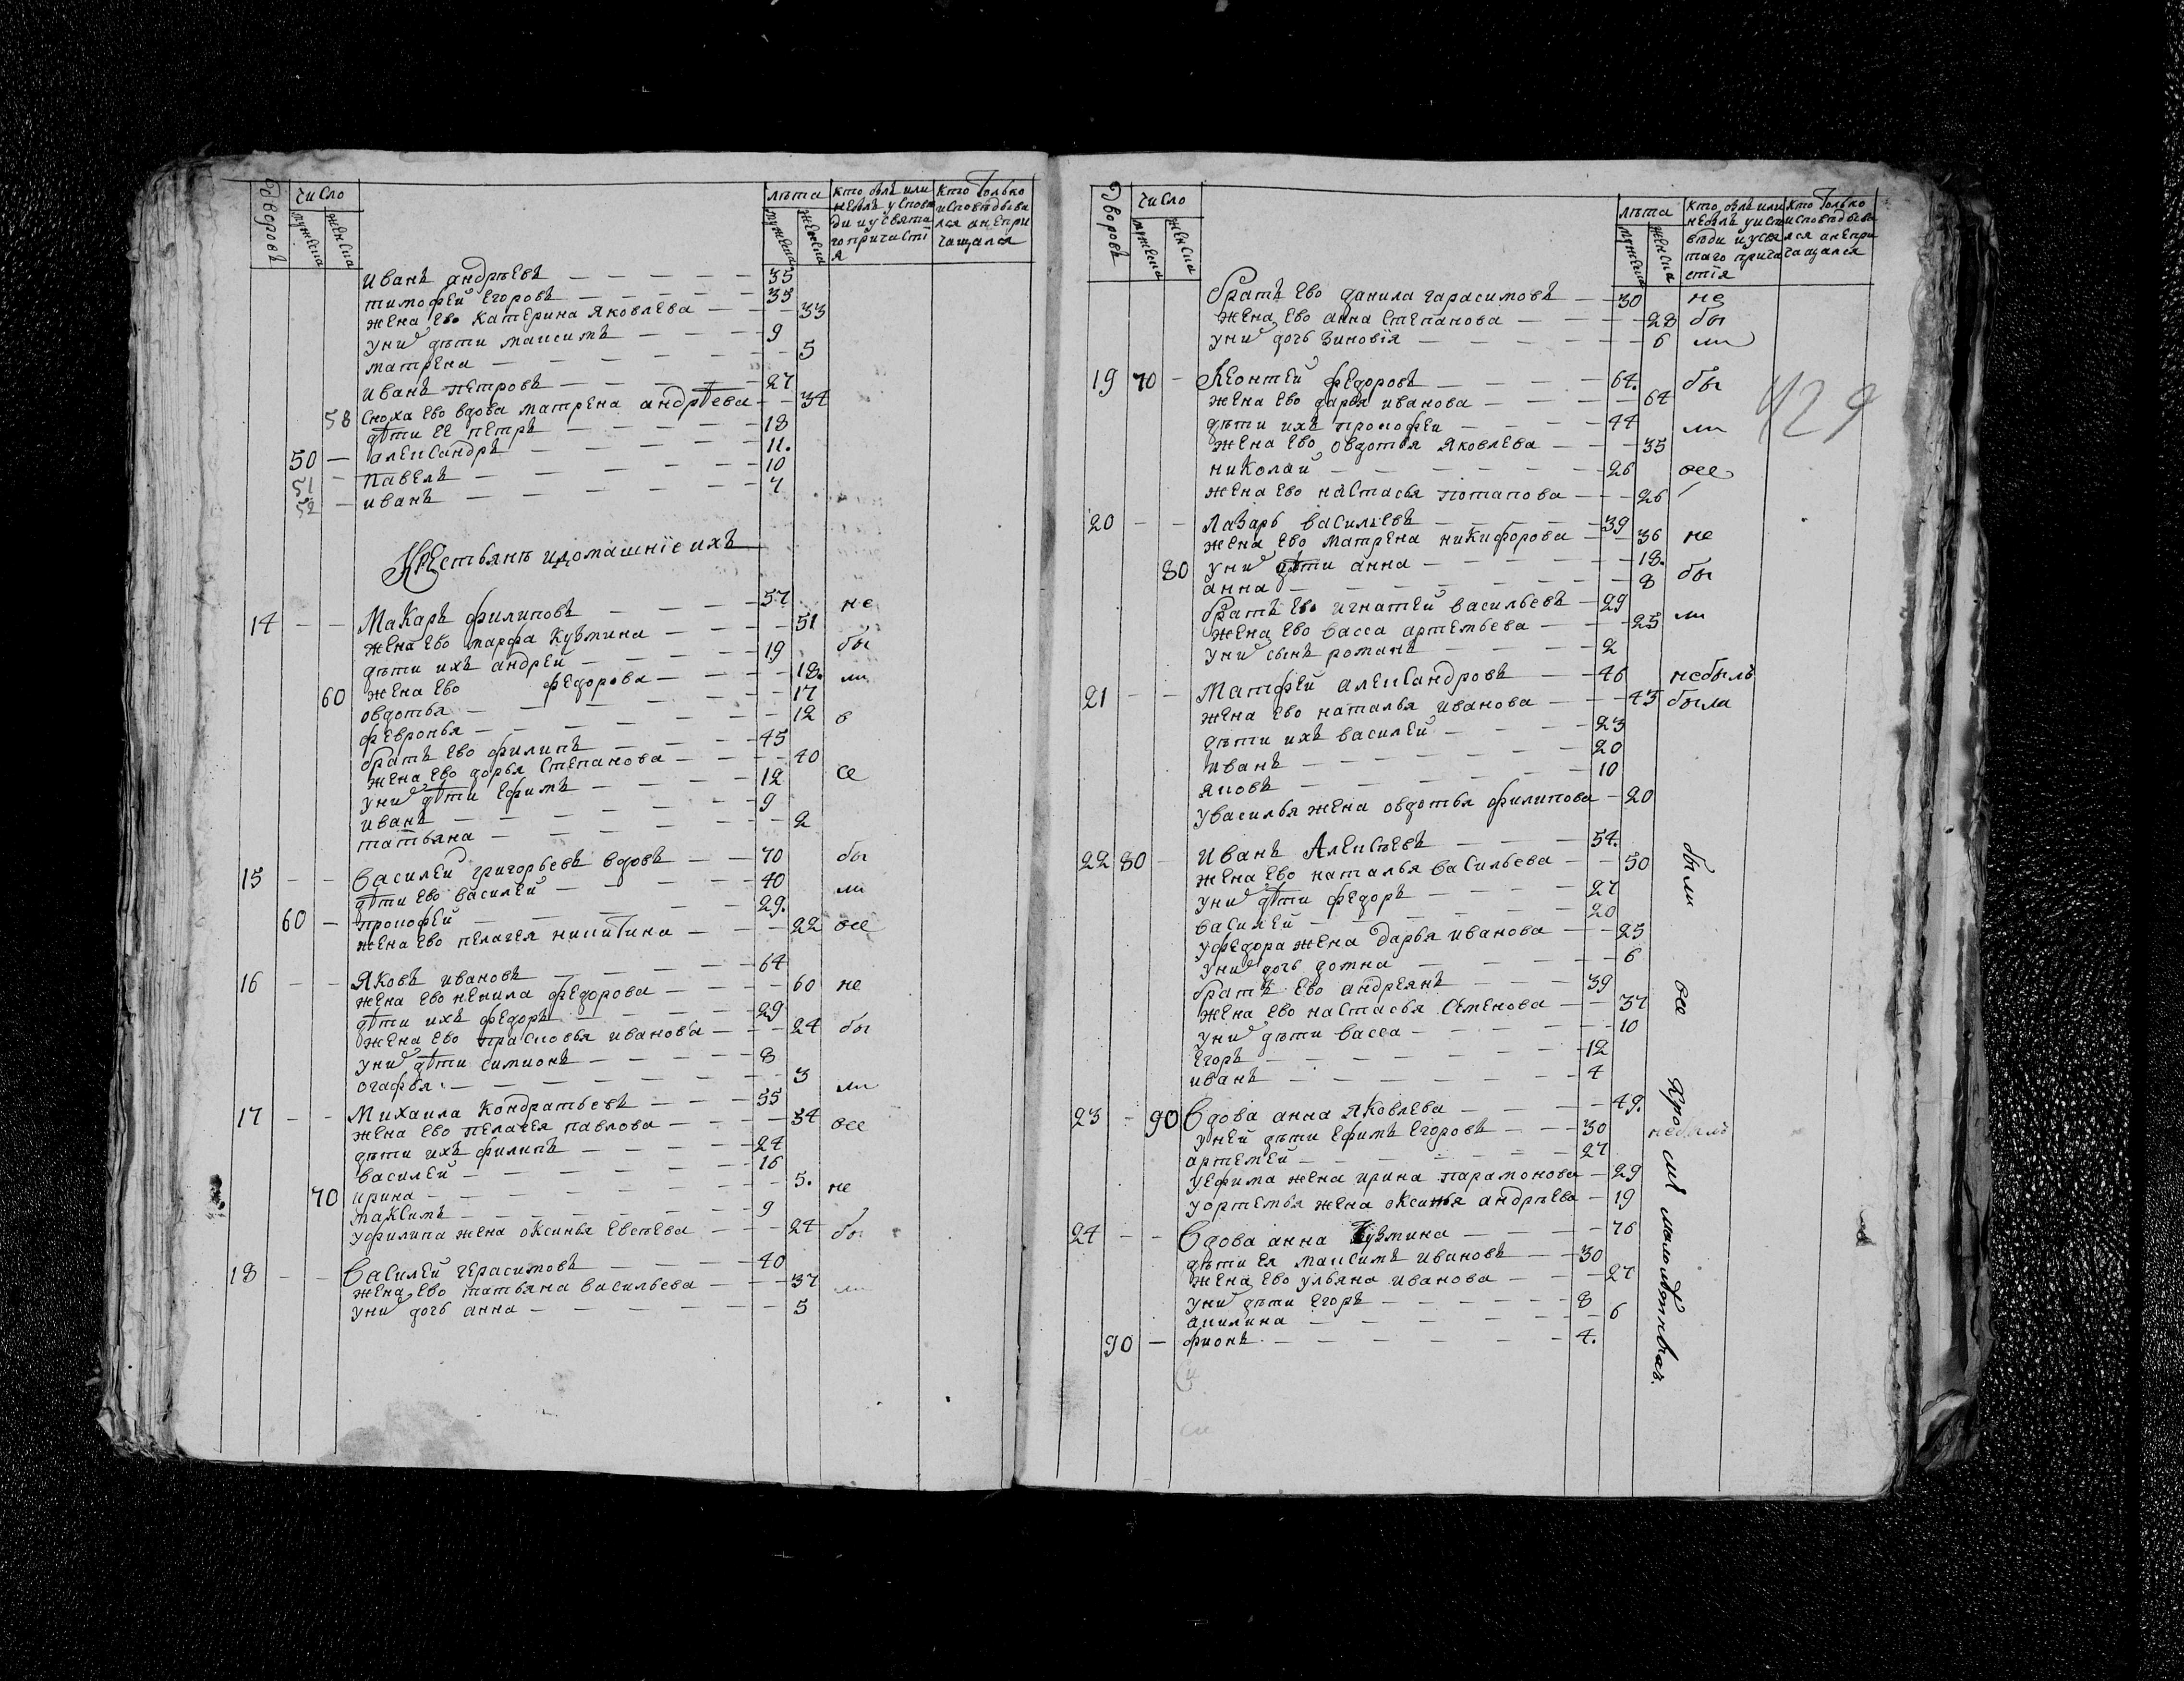 дворовъ
число
мужеска
женска
лѣта
мужеска
женска
кто былъ или
небылъ уиспове
ди иусвята
го причасті
я
кто только
исповѣдыва
лся анепри
чащался
иванъ андрѣевъ — — — — — 35
тимофей егоровъ — — — — — 35
жена ево катерина яковлева — — — 33
уних дѣти максимъ — — — — 9
матрена — — — — — — — 5
иванъ петровъ — — — — — 27
58 сноха ево вдова матрена андрѣева — — 34
дѣти ее петръ — — — — — 18
50 — александръ — — — — — 11.
51 — павелъ — — — — — — 10
52 — иванъ — — — — — — 7
Крестьянъ идомашніе ихъ
14 — — Макаръ филиповъ — — — — 57 не
жена ево марфа кузмина — — — — 51
дѣти ихъ андрей — — — — — 19 бы
60 жена ево федорова — — — — 18. ли
овдотья — — — — — — — 17
февронья — — — — — — — 12 в
братъ ево филипъ — — — — 45
жена ево дорья степанова — — — — 40
уних дѣти ефимъ — — — — 12 се
иванъ — — — — — — — 9
татьяна — — — — — — — 2
15 — — Василей григорьевъ вдовъ — — 70 бы
дѣти ево василей — — — — 40 ли
60 — прокофей — — — — — 29.
жена ево пелагея никитина — — — 22 все
16 — — Яковъ ивановъ — — — — — 64
жена ево ненила федорова — — — — 60 не
дѣти ихъ федоръ — — — — — 29
жена ево прасковья иванова — — — 24 бы
уних дѣти симионъ — — — — 8
огафья — — — — — — — 3 ли
17 — — Михаила кондратьевъ — — — 55
жена ево пелагея павлова — — — — 54 все
дѣти ихъ филипъ — — — — 24
василей — — — — — — — 16
70 ирина — — — — — — — 5. не
максимъ — — — — — — — 9
уфилипа жена оксинья евсеева — — — 24 бы
18 — — Василей герасимовъ — — — — 40
жена ево татьяна васильева — — — 37 ли
уних дочь анна — — — — — — 5
дворовъ
число
мужеска
женска
лѣта
мужеска
женска
кто былъ или
небылъ уиспо
вѣди иусвя
таго прича
стія
кто только
исповѣдыва
лся анепри
чащался
братъ ево данила гарасимовъ — — 30 не
жена ево анна степанова — — — — 28 бы
уних дочь зиновія — — — — — — 6 ли
19 70 — Леонтей федоровъ — — — — 64. бы
жена ево дарья иванова — — — — — 64
429
дѣти ихъ прокофей — — — — 44 ли
жена ево овдотья яковлева — — — 35
николай — — — — — — — 26 все
жена ево настасья потапова — — — 26
20 — — Лазарь васильевъ — — — — — 39
жена ево матрена никифорова — — 36 не
80 уних дѣти анна — — — — — — 18.
анна — — — — — — — — 8 бы
братъ ево игнатей васильевъ — 29
жена ево васса артемьева — — — 25 ли
уних сынъ романъ — — — — 2
21 — — Матфей александровъ — — 46 небылъ
жена ево наталья иванова — — — 43 была
дѣти ихъ василей — — — — 23
иванъ — — — — — — — 20
яковъ — — — — — — — 10
увасилья жена овдотья филипова — 20
22 80 — Иванъ Алексѣевъ — — — 54.
жена ево наталья васильева — — 50
уних дѣти федоръ — — — — 27
василей — — — — — — — 20
уфедора жена дарья иванова — — 25
уних дочь домна — — — — — 6
братъ ево андреянъ — — — 39
жена ево настасья семенова — — 37
уних дѣти васса — — — — — — 10
егоръ — — — — — — — 12
иванъ — — — — — — — 4
были все кромѣ малолѣтныхъ.
23 — 90 Вдова анна яковлева — — — — 49.
уней дѣти ефимъ егоровъ — — 30 небылъ
артемей — — — — — — 27
уефима жена ирина парамонова — 29
уортемья жена оксинья андрѣева — 19
24 — — Вдова анна кузмина — — — — 76
дѣти ея максимъ ивановъ — — 30
жена ево ульяна иванова — — — 27
уних дѣти егоръ — — — — — 8
акилина — — — — — — — 6
90 — фионъ — — — — — — — 4.